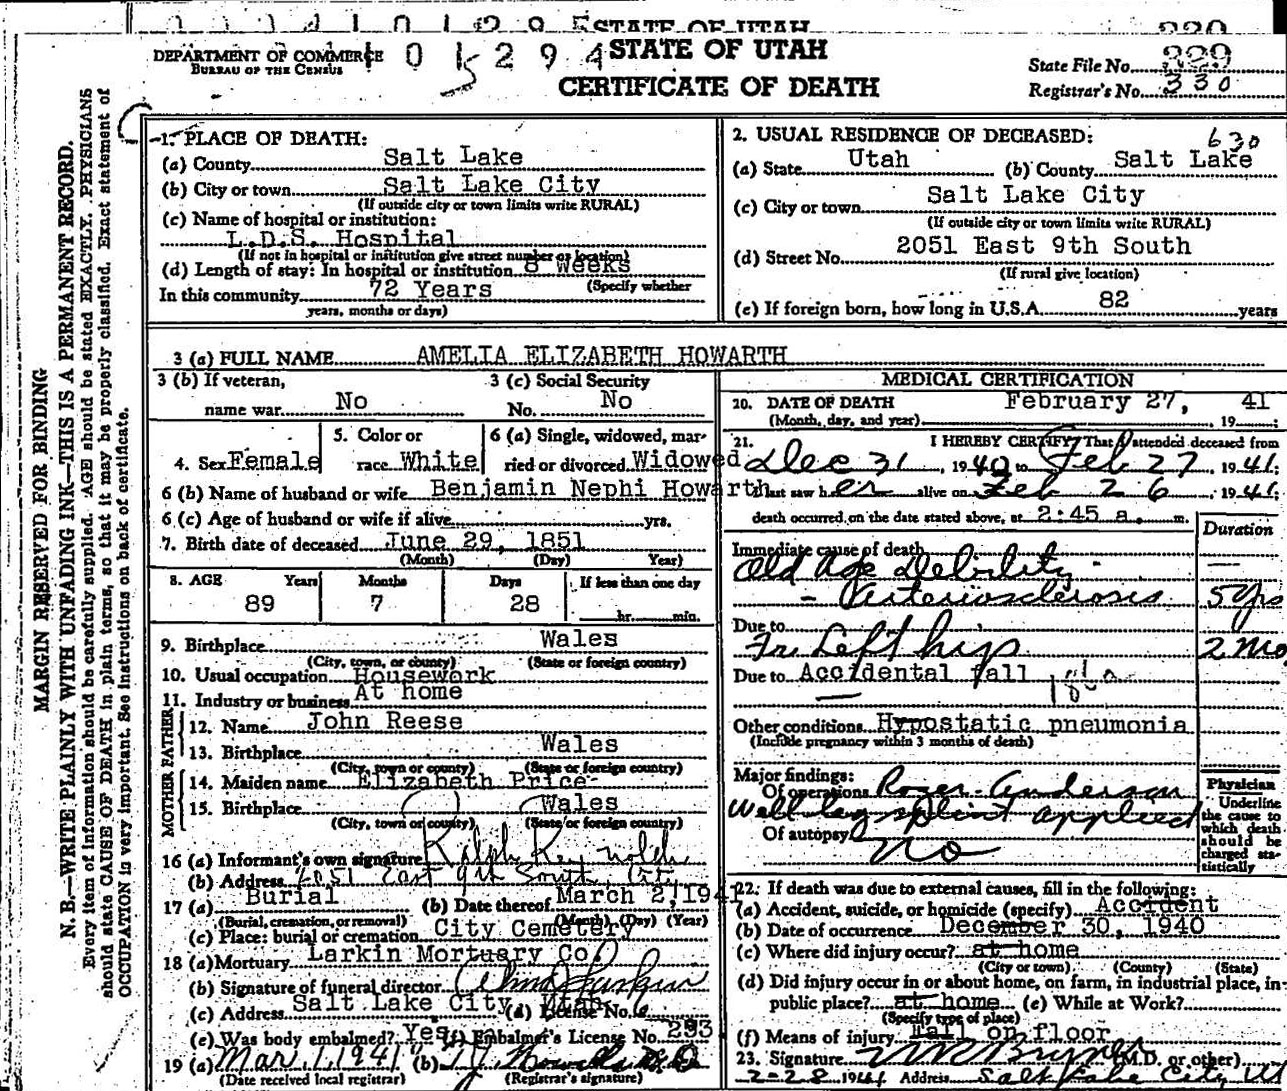 STATE OF UTAH
DEPARTMENT OF COMMERCE
BUREAU OF THE CENSUS
STATE OF UTAH
CERTIFICATE OF DEATH
State File No. 229
Registrar's No. 330
MARGIN RESERVED FOR BINDING
N. B.—WRITE PLAINLY WITH UNFADING INK—THIS IS A PERMANENT RECORD.
Every item of information should be carefully supplied. AGE should be stated EXACTLY. PHYSICIANS
should state CAUSE OF DEATH in plain terms, so that it may be properly classified. Exact statement of
OCCUPATION is very important. See instructions on back of certificate.
1. PLACE OF DEATH:
(a) County Salt Lake
(b) City or town Salt Lake City
(If outside city or town limits write RURAL)
(c) Name of hospital or institution:
L.D.S. Hospital
(If not in hospital or institution give street number or location)
(d) Length of stay: In hospital or institution 8 Weeks
(Specify whether
In this community 72 Years
years, months or days)
2. USUAL RESIDENCE OF DECEASED: 630
(a) State Utah (b) County Salt Lake
(c) City or town Salt Lake City
(If outside city or town limits write RURAL)
(d) Street No. 2051 East 9th South
(If rural give location)
(e) If foreign born, how long in U.S.A. 82 years
3 (a) FULL NAME AMELIA ELIZABETH HOWARTH
3 (b) If veteran,
name war No
3 (c) Social Security
No. No
4. Sex Female
5. Color or
race White
6 (a) Single, widowed, mar-
ried or divorced Widowed
6 (b) Name of husband or wife Benjamin Nephi Howarth
6 (c) Age of husband or wife if alive yrs.
7. Birth date of deceased June 29, 1851
(Month) (Day) Year)
8. AGE Years Months Days If less than one day
89 7 28 hr. min.
9. Birthplace Wales
(City, town, or county) (State or foreign country)
10. Usual occupation Housework
11. Industry or business At home
FATHER
12. Name John Reese
13. Birthplace Wales
(City, town or county) (State or foreign country)
MOTHER
14. Maiden name Elizabeth Price
15. Birthplace Wales
(City, town or county) (State or foreign country)
16 (a) Informant's own signature Ralph
(b) Address 2051 East 9th South
17 (a) Burial (b) Date thereof March 2, 1941
(Burial, cremation, or removal) (Month) (Day) (Year)
(c) Place: burial or cremation City Cemetery
18 (a) Mortuary Larkin Mortuary Co
(b) Signature of funeral director Larkin
(c) Address Salt Lake City, Utah (d) License No.
(e) Was body embalmed? Yes (f) Embalmer's License No. 293
19 (a) Mar 1, 1941 (b)
(Date received local registrar) (Registrar's signature)
MEDICAL CERTIFICATION
20. DATE OF DEATH February 27, 1941
(Month, day, and year)
21. I HEREBY CERTIFY That I attended deceased from
Dec 31, 1940 to Feb 27, 1941;
I last saw her alive on Feb 26, 1941;
death occurred on the date stated above, at 2:45 a. m.
Duration
Immediate cause of death
Old Age Debility
- Arteriosclerosis 5 yrs
Due to
Fr. Left hip 2 mo
Due to Accidental fall
Other conditions Hypostatic pneumonia
(Include pregnancy within 3 months of death)
Major findings:
Of operations Roger Anderson
Well leg splint applied
Of autopsy No
Physician
Underline
the cause to
which death
should be
charged sta-
tistically
22. If death was due to external causes, fill in the following:
(a) Accident, suicide, or homicide (specify) Accident
(b) Date of occurrence December 30, 1940
(c) Where did injury occur? at home
(City or town) (County) (State)
(d) Did injury occur in or about home, on farm, in industrial place, in
public place? at home (e) While at Work?
(Specify type of place)
(f) Means of injury Fall on floor
23. Signature (M.D. or other)
2-28 1941 Address Salt Lake City U